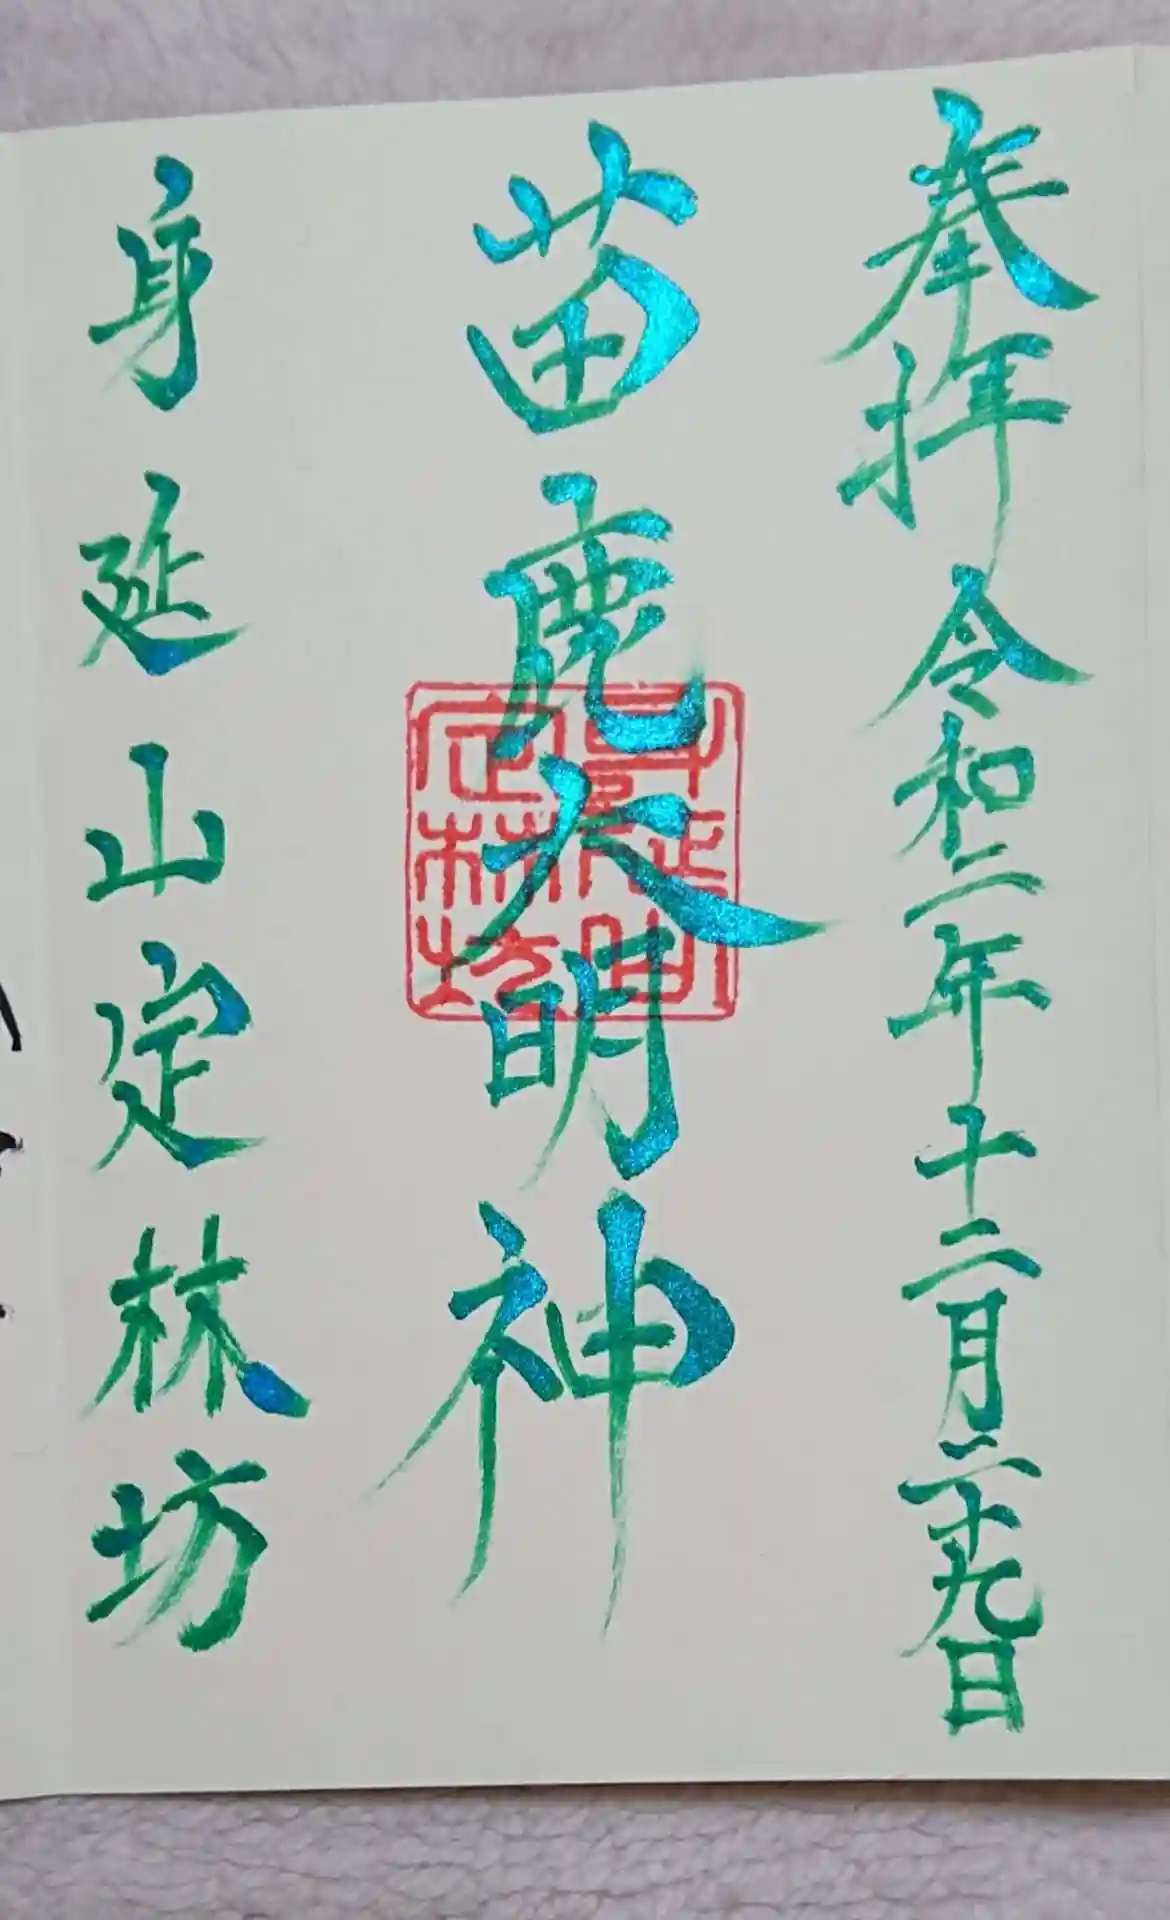 奉拝 令和二年十二月二十九日
苗鹿大明神
身延山定林坊
身延山定林坊